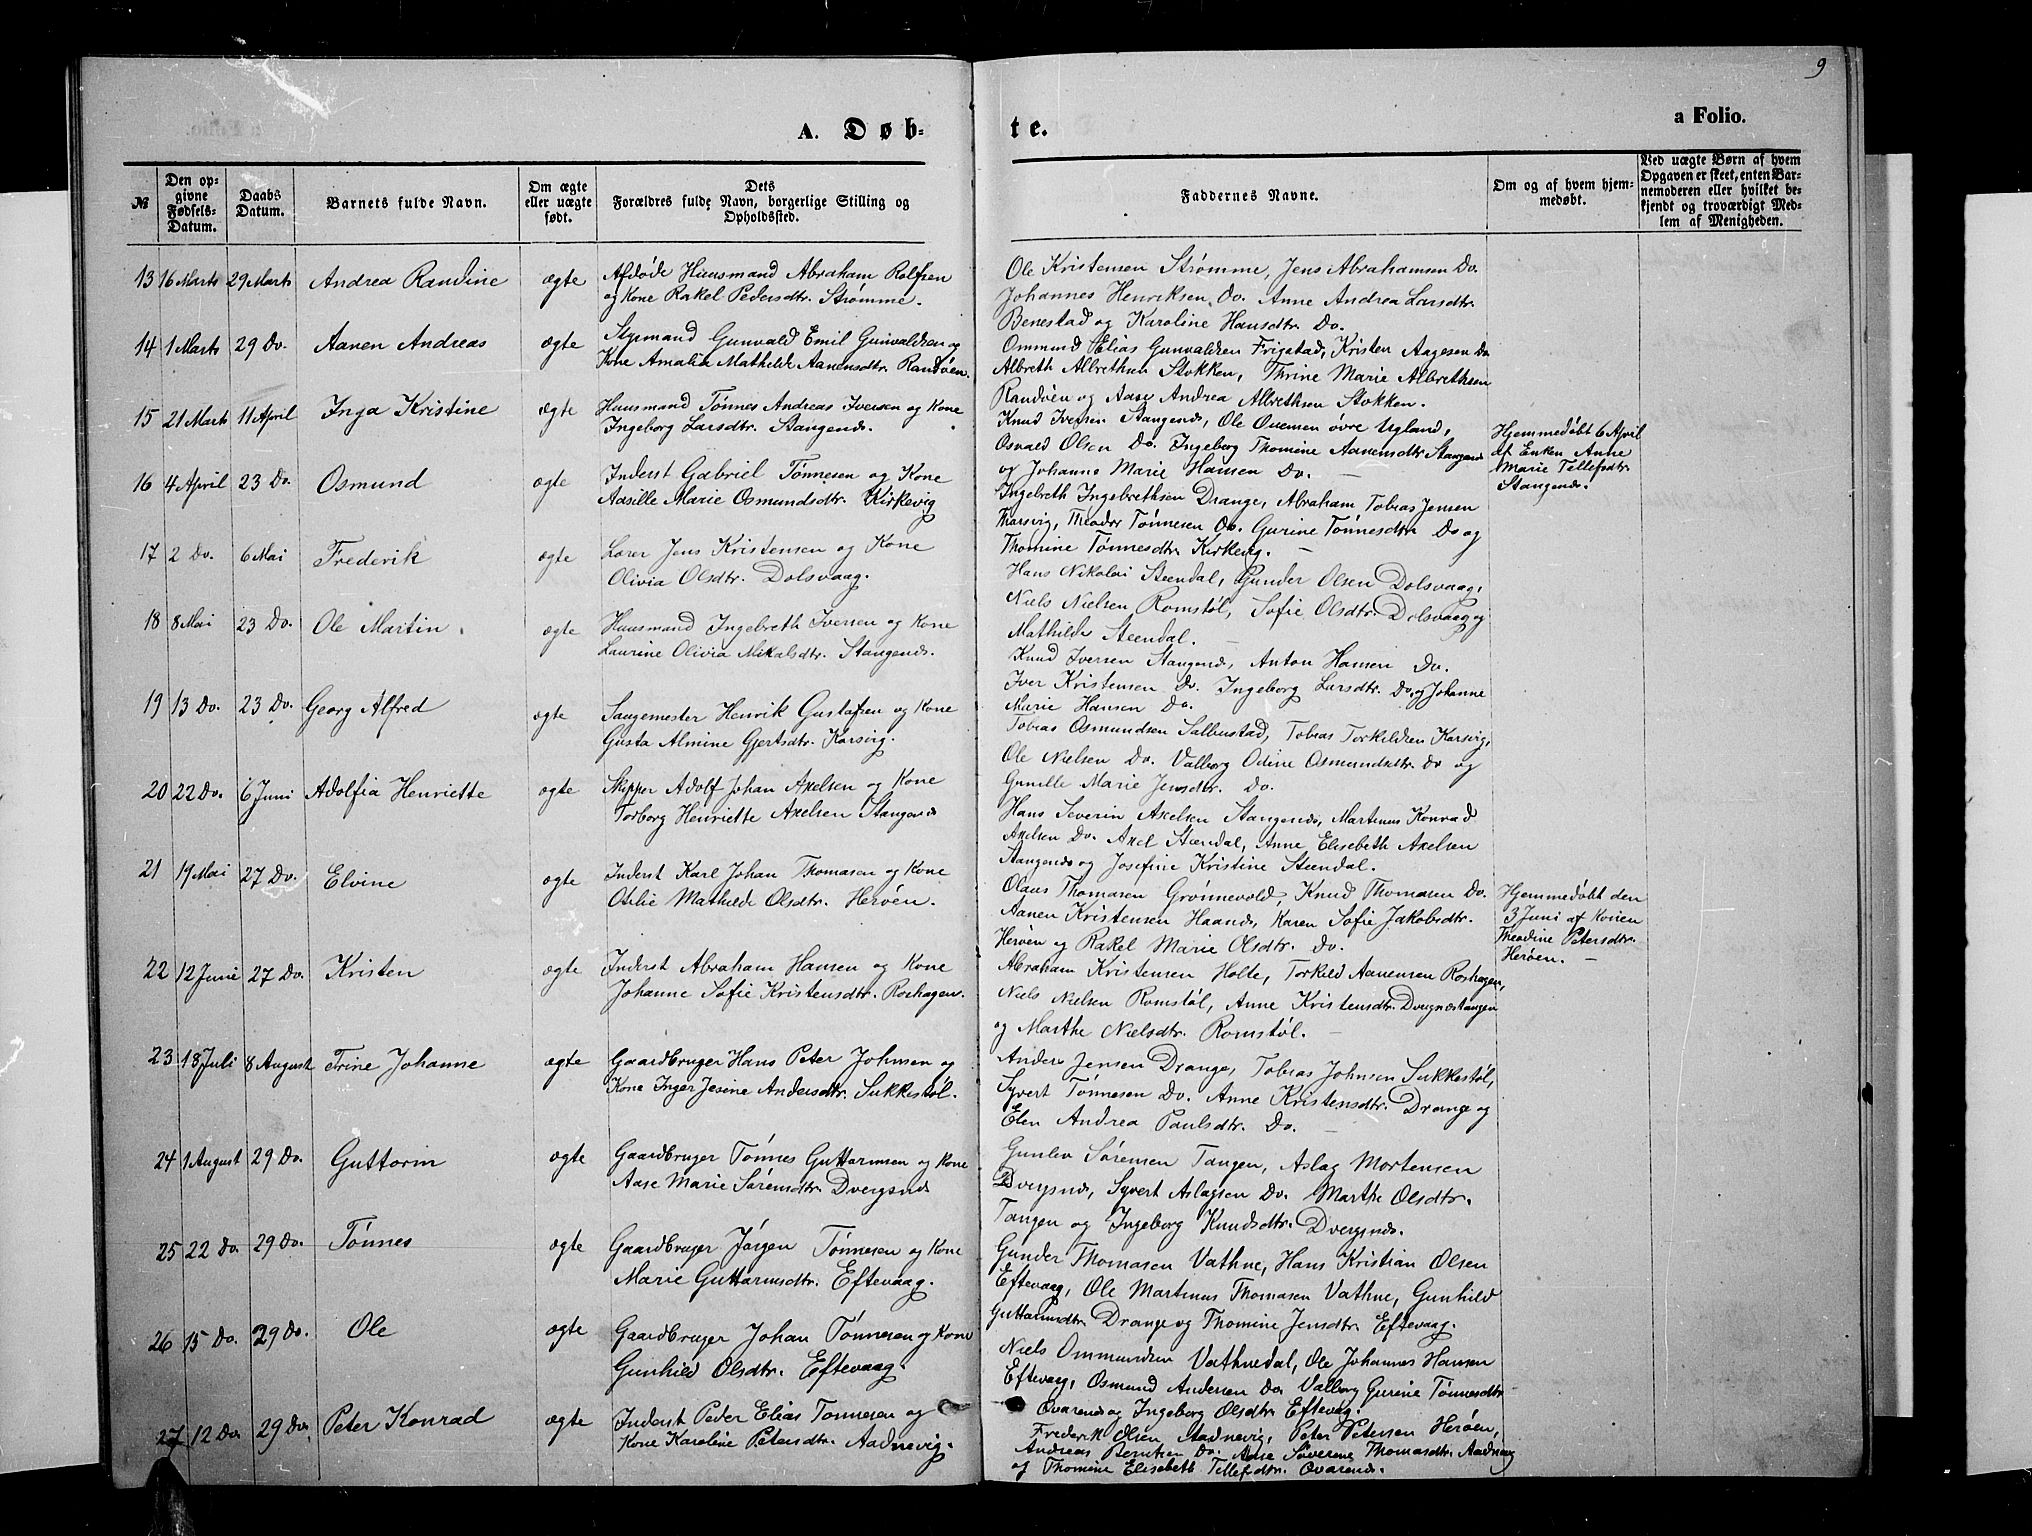 9
A. Døb-
te.
a Folio.
№
Den op-
givne
Fødsels-
Datum.
Daabs
Datum.
Barnets fulde Navn.
Om ægte
eller uægte
født.
Dets
Forældres fulde Navn, borgerlige Stilling og
Opholdssted.
Faddernes Navne.
Om og af hvem hjem-
medøbt.
Ved uægte Børn af hvem
Opgaven er skeet, enten Bar-
nemoderen eller hvilket be-
kjendt og troværdigt Med-
lem af Menigheden.
13 16 Marts 29 Marts Andrea Randine ægte
Afdøde Huusmand Abraham Rolfsen
og Kone Rakel Pedersdtr. Strømme.
Ole Kristensen Strømme, Jens Abrahamsen Do.
Johannes Henriksen Do. Anne Andrea Larsdtr.
Benestad og Karoline Hansdtr. Do.
14 1 Marts 29 Do. Aanen Andreas ægte
Styrmand Gunvald Emil Gunvaldsen og
Kone Amalia Mathilde Aanensdtr. Randøen.
Ommund Elias Gunvaldsen Frigstad, Kristen Aagesen Do
Albreth Albrethsen Stokken, Thrine Marie Albrethsen
Randøen og Aase Andrea Albrethsen Stokken.
15 21 Marts 11 April Inga Kristine ægte
Huusmand Tønnes Andreas Iversen og Kone
Ingeborg Larsdtr. Stangenæs.
Knud Iversen Stangenæs, Ole Ouensen øvre Ugland,
Osvald Olsen Do. Ingeborg Thomine Aanensdtr Stangenæs
og Johanne Marie Hansen Do.
Hjemmedøbt 6 April
af Enken Anne
Marie Tellefsdtr.
Stangenæs.
16 4 April 23 Do. Osmund ægte
Inderst Gabriel Tønnesen og Kone
Aasille Marie Osmundsdtr. Kirkevig
Ingebreth Ingebrethsen Drange, Abraham Tobias Jensen
Tharsvig, Theodor Tønnesen Do. Gurine Tønnesdtr. Do og
Thomine Tønnesdtr. Kirkevig. —
17 2 Do. 6 Mai Frederik ægte
Lærer Jens Kristensen og Kone
Olivia Olsdtr. Dolsvaag.
Hans Nikolai Steendal, Gunder Olsen Dolsvaag,
Niels Nielsen Romstøl, Sofie Olsdtr. Dolsvaag og
Mathilde Steendal. —
18 8 Mai 23 Do. Ole Martin ægte
Huusmand Ingebreth Iversen og Kone
Laurine Olivia Nikalsdtr. Stangenæs.
Knud Iversen Stangenæs, Anton Hansen Do.
Iver Kristensen Do. Ingeborg Larsdtr. Do. og Johanne
Marie Hansen Do.
19 13 Do. 23 Do. Georg Alfred ægte
Saugemester Henrik Gustafsen og Kone
Gusta Almine Gjertsdtr. Korsvig.
Tobias Osmundsen Salbustad, Tobias Torkildsen Korsvig,
Ole Nielsen Do. Valborg Odine Osmundsdtr. Do og
Gunille Marie Jensdtr. Do.
20 22 Do. 6 Juni Adolfia Henriette ægte
Skipper Adolf Johan Axelsen og Kone
Torborg Henriette Axelsen Stangenæs
Hans Severin Axelsen Stangenæs, Martinus Konrad
Axelsen Do. Axel Steendal, Anne Elisebeth Axelsen
Stangenæs og Josefine Kristine Steendal.
21 19 Mai 27 Do. Elvine ægte
Inderst Karl Johan Thomasen og Kone
Otilie Mathilde Olsdtr. Herøen.
Olaus Thomasen Grønnevold, Knud Thomasen Do.
Aanen Kristensen Haanæs, Karen Sofie Jakobsdtr.
Herøen og Rakel Marie Olsdtr. Do.
Hjemmedøbt den
3 Juni af Konen
Theodine Petersdtr.
Herøen. —
22 12 Juni 27 Do. Kristen ægte
Inderst Abraham Hansen og Kone
Johanne Sofie Kristensdtr. Roshagen.
Abraham Kristensen Holte, Torkild Aanensen Roshagen,
Niels Nielsen Romstøl, Anne Kristensdtr. Dvergnæstangen
og Marthe Nielsdtr. Romstøl. —
23 18 Juli 8 August Trine Johanne ægte
Gaardbruger Hans Peter Johnsen og
Kone Inger Jesine Andersdtr. Sukkestøl.
Anders Jensen Drange, Tobias Johnsen Sukkestøl,
Syvert Tønnesen Do. Anne Kristensdtr. Drange og
Elen Andrea Paulsdtr. Do. —
24 1 August 29 Do. Guttorm ægte
Gaardbruger Tønnes Guttormsen og Kone
Aase Marie Sørensdtr. Dvergsnæs
Gunlev Sørensen Tangen, Aslag Mortensen
Dvergsnæs, Syvert Aslagsen Do. Marthe Olsdtr.
Tangen og Ingeborg Knudsdtr. Dvergsnæs.
25 22 Do. 29 Do. Tønnes ægte
Gaardbruger Jørgen Tønnesen og Kone
Marie Guttormsdtr. Eftevaag.
Gunder Thomasen Vathne, Hans Kristian Olsen
Eftevaag, Ole Martinus Thomasen Vathne, Gunhild
Guttormsdtr. Drange og Thomine Jensdtr. Eftevaag.
26 15 Do. 29 Do. Ole ægte
Gaardbruger Johan Tønnesen og Kone
Gunhild Olsdtr. Eftevaag.
Niels Ommundsen Vathnedal, Ole Johannes Hansen
Eftevaag, Osmund Andersen Do. Valborg Gurine Tønnesdtr
Ovarenæs og Ingeborg Olsdtr. Eftevaag.
27 12 Do. 29 Do. Peter Konrad ægte
Inderst Peder Elias Tønnesen og
Kone Karoline Petersdtr. Aadnevig.
Frederik Olsen Aadnevig, Peter Petersen Herøen,
Andreas Berntsen Do. Aase Severine Thomasdtr. Aadnevig
og Thomine Elisebeth Tellefsdtr. Ovarenæs.